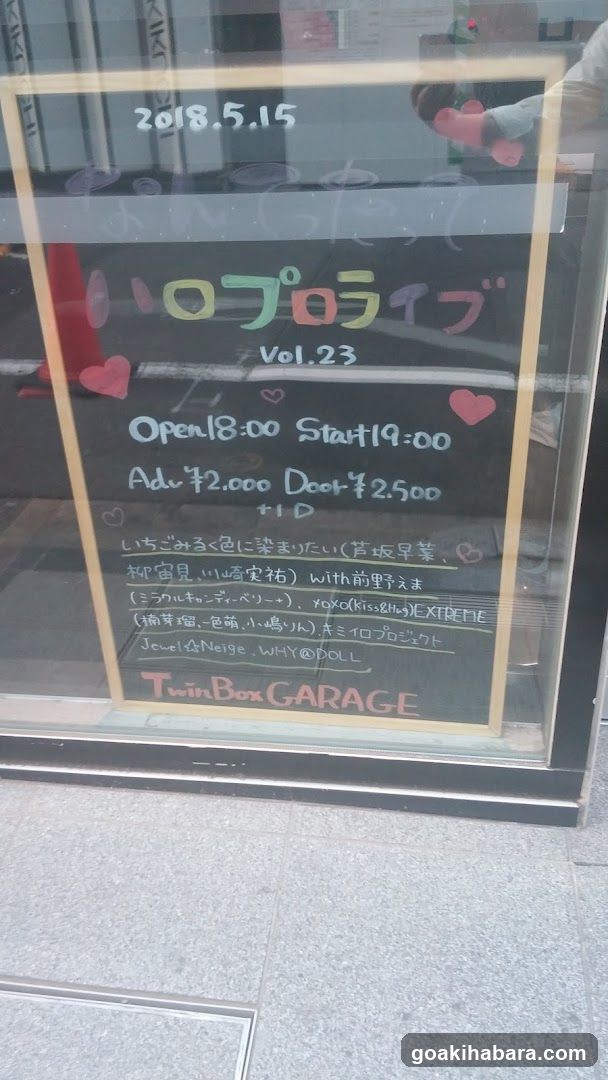 2018.5.15
なんてたって
いロプロライブ
Vol.23
Open18:00 Start19:00
Adv¥2.000 Door¥2.500
+1D
いちごみるく色に染まりたい(芦坂早菜、
柳宙見、川崎実祐) with前野えま
(ミラクルキャンディーベリー+)、xoxo(Kiss&Hug)EXTREME
(楠芽瑠、一色萌、小嶋りん)、キミイロプロジェクト
Jewel☆Neige、WHY@DOLL
TwinBox GARAGE
goakihabara.com